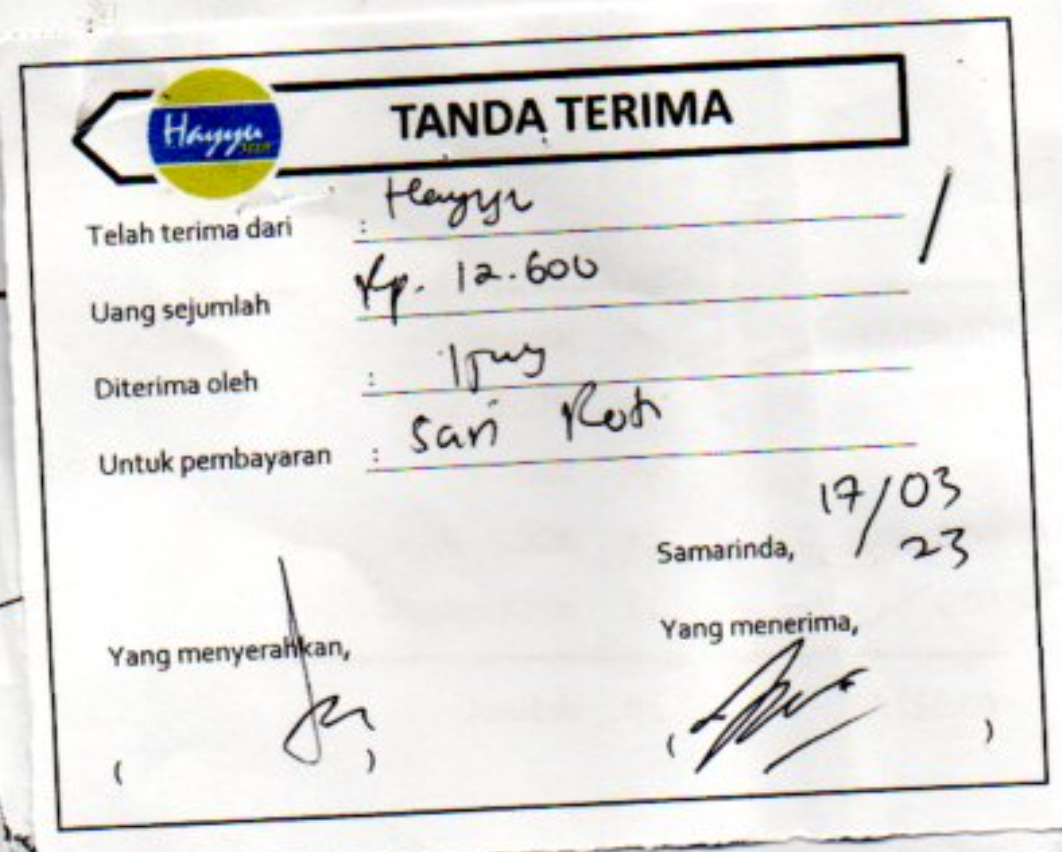 Hayyu
TANDA TERIMA
Telah terima dari : Hayyu
Uang sejumlah Rp. 12.600
Diterima oleh :
Untuk pembayaran : Sari Roti
17/03
Samarinda, 23
Yang menyerahkan, Yang menerima,
( ) ( )